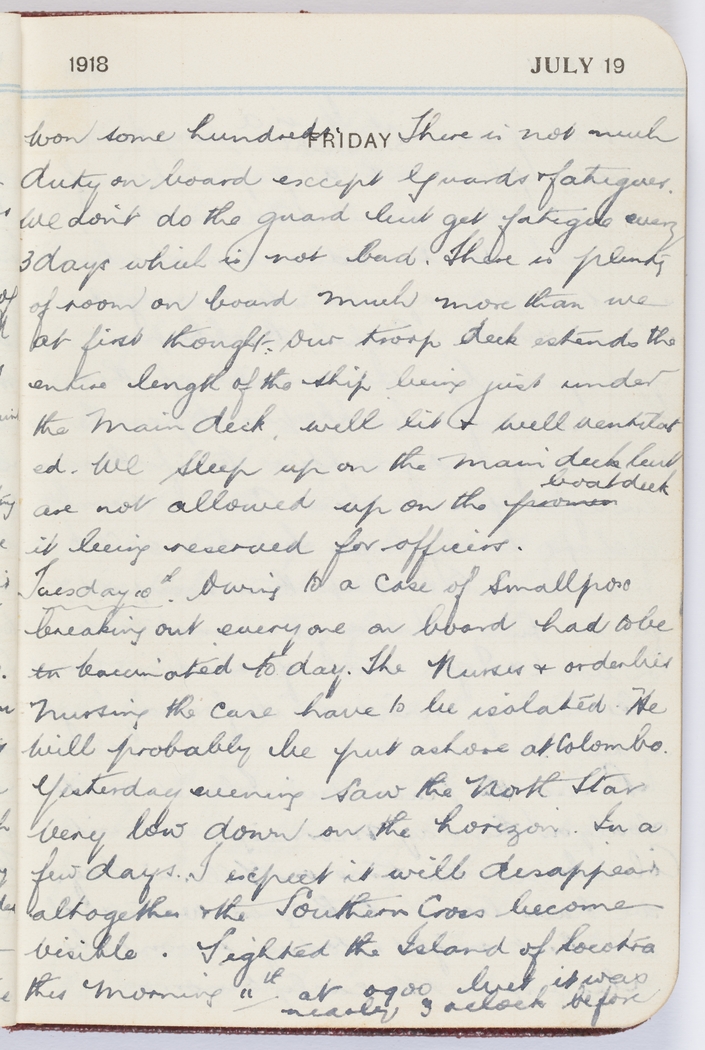 1918 JULY 19
FRIDAY
won some hundreds. There is not much
duty on board except Guards & fatigues.
We don't do the guard but get fatigue every
3 days which is not bad. There is plenty
of room on board much more than we
at first thought. Our troop deck extends the
entire length of the ship being just under
the Main deck, well lit & well ventilat
ed. We sleep up on the main deck but
boat deck
are not allowed up on the
it being reserved for officers.
Tuesday 10th. Owing to a case of Smallpox
breaking out everyone on board had to be
to vaccinated to day. The Nurses & orderlies
Nursing the case have to be isolated. He
will probably be put ashore at Colombo.
Yesterday evening saw the North Star
very low down on the horizon. In a
few days. I expect it will disappear
altogether & the Southern Cross become
visible. Sighted the Island of Socotra
this Morning 11th at 0900 but it was
nearly 3 oclock before